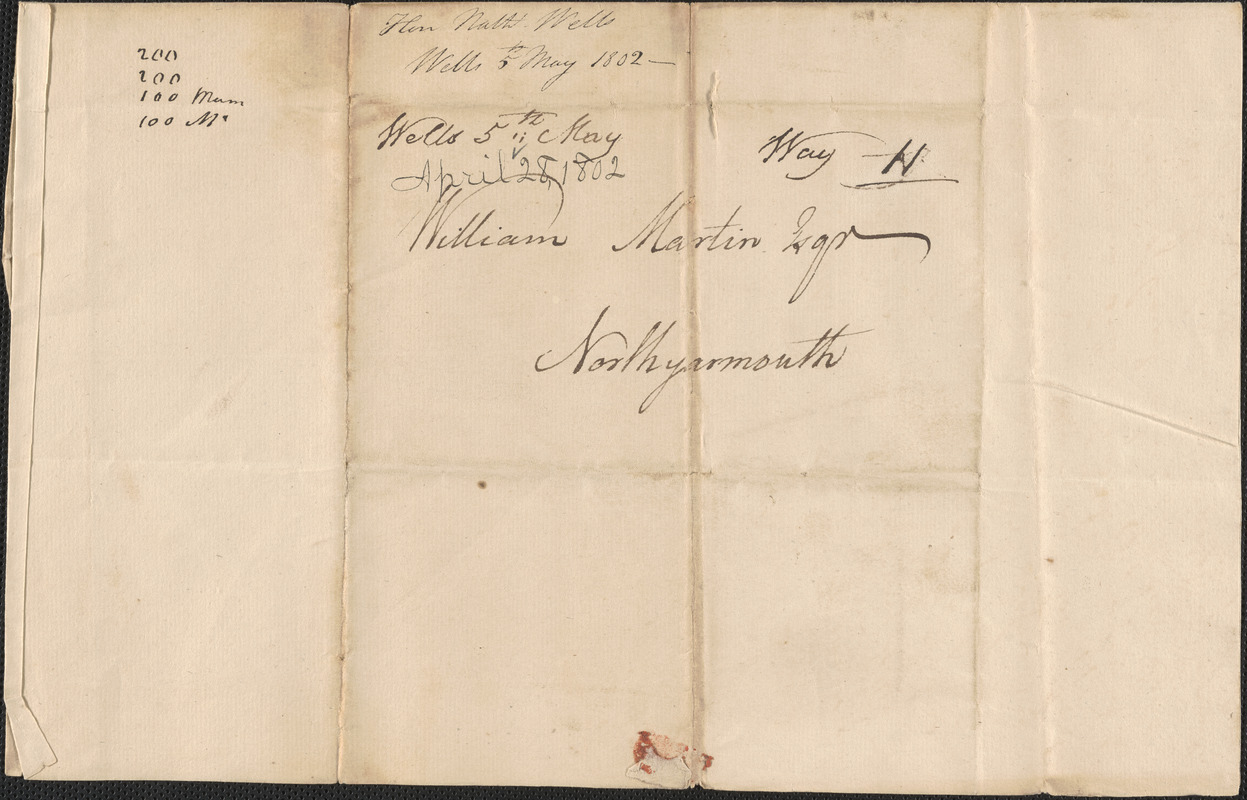 200
200
100 Mum
100 Mr
Hon Nathl. Wells
Wells 5th May 1802—
Wells 5th May
April 28, 1802
Way 11
William Martin Esqr
Northyarmouth